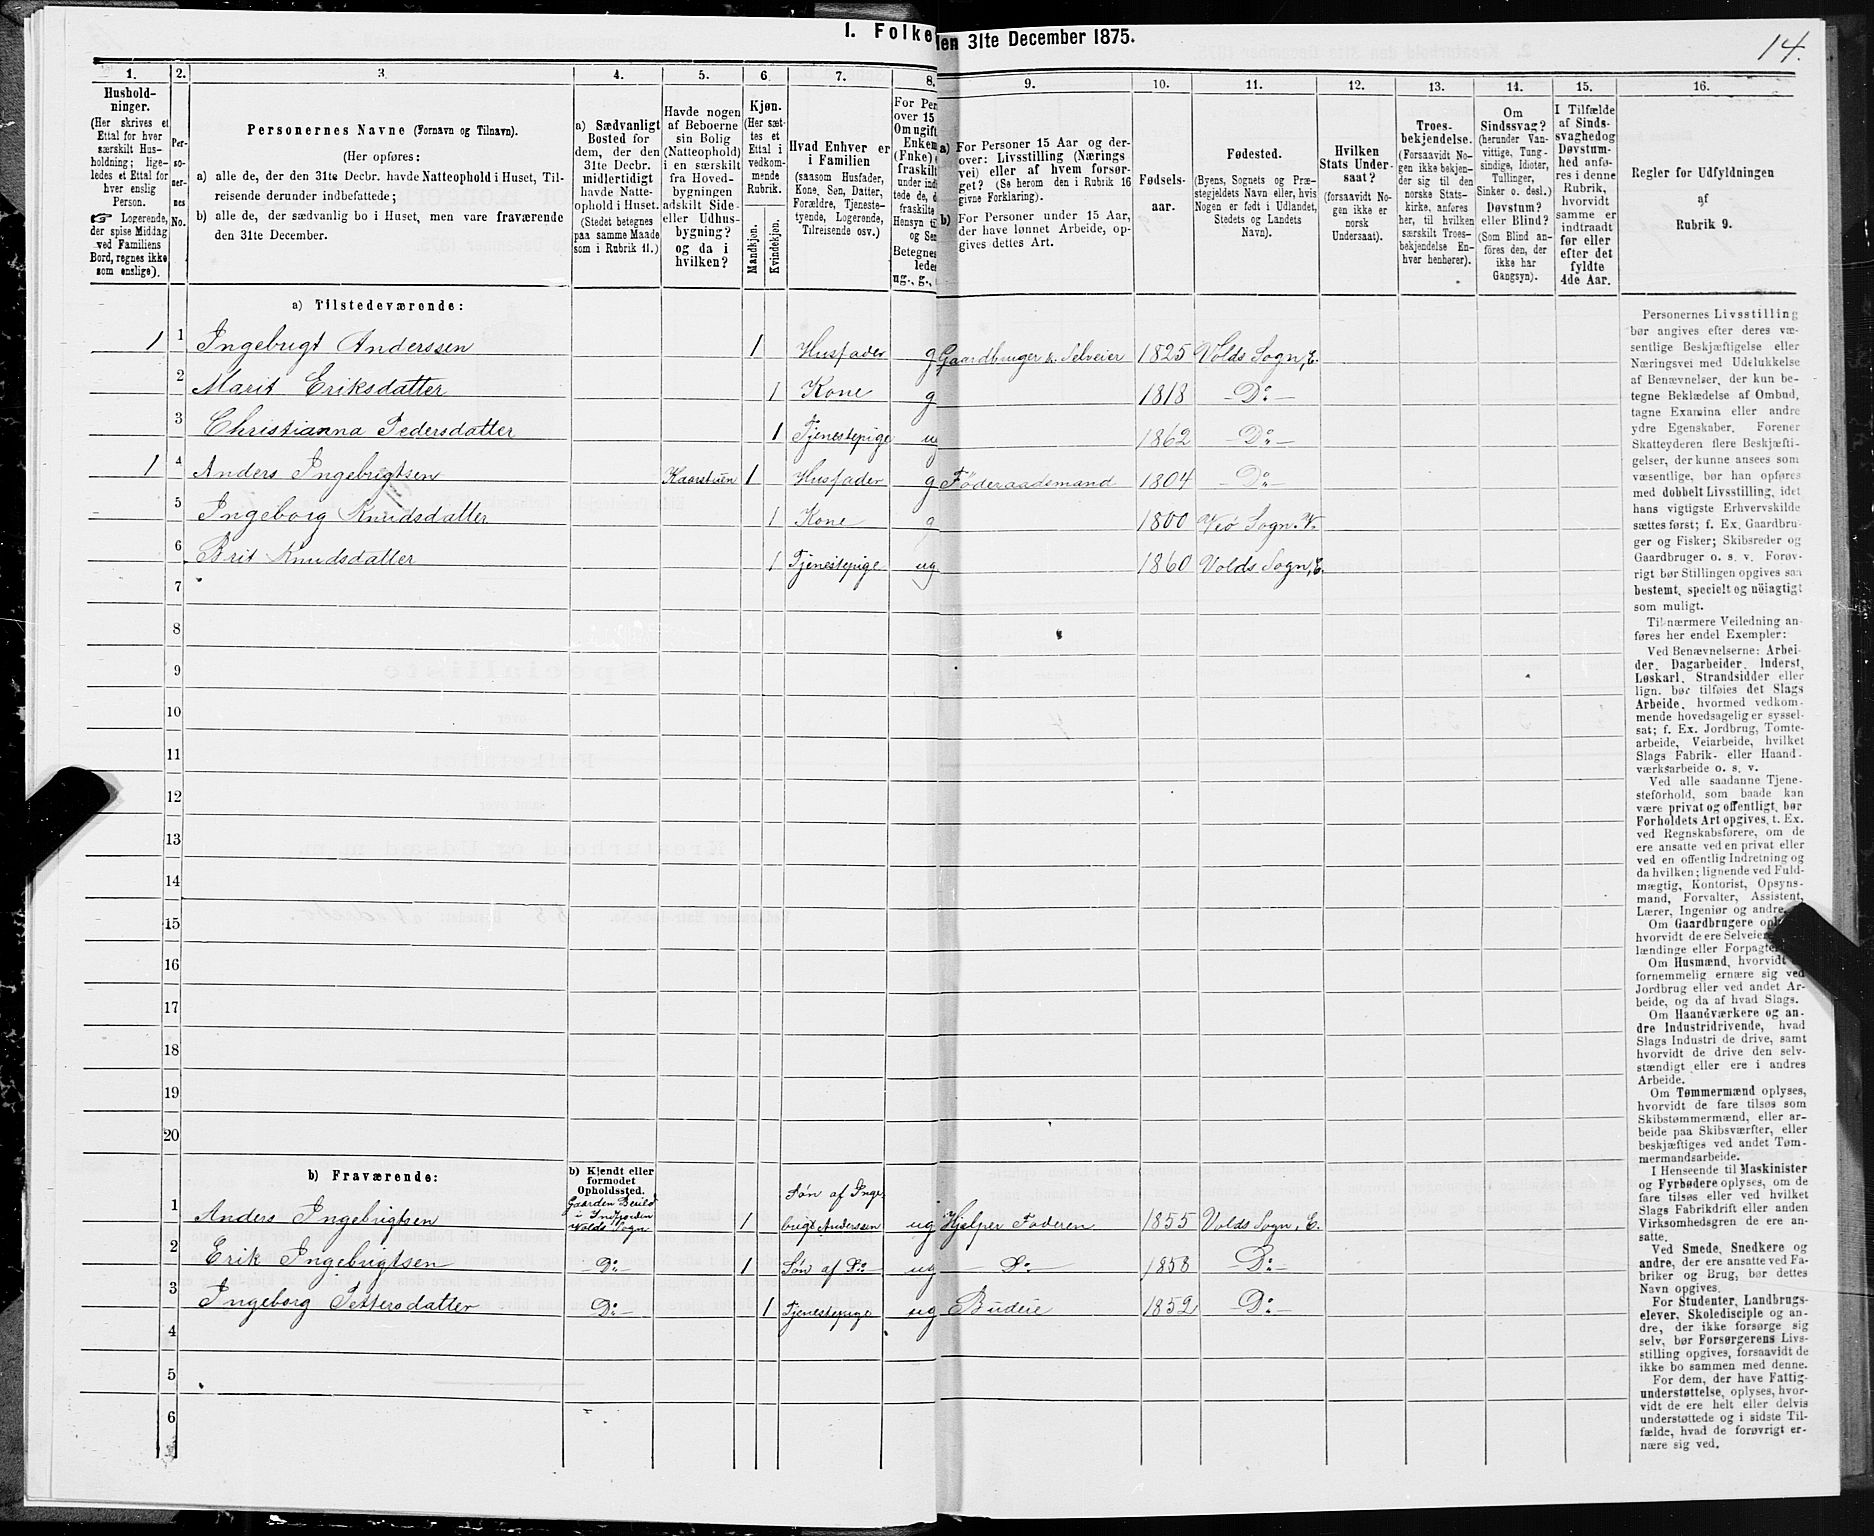 1. Folke
den 31te December 1875.
14.
1.
2.
3.
4.
5.
6.
7.
8.
9.
10.
11.
12.
13.
14.
15.
16.
Hushold-
ninger.
(Her skrives et
Ettal for hver
særskilt Hus-
holdning; lige-
ledes et Ettal for
hver enslig
Person.
☞ Logerende,
der spise Middag
ved Familiens
Bord, regnes ikke
som enslige).
Per-
so-
ner-
nes
No.
Personernes Navne (Fornavn og Tilnavn).
(Her opføres:
a) alle de, der den 31te Decbr. havde Natteophold i Huset, Til-
reisende derunder indbefattede;
b) alle de, der sædvanlig bo i Huset, men vare fraværende
den 31te December.
a) Sædvanligt
Bosted for
dem, der den
31te Decbr.
midlertidigt
havde Natte-
ophold i Huset.
(Stedet betegnes
paa samme Maade
som i Rubrik 11.)
Havde nogen
af Beboerne
sin Bolig
(Natteophold)
i en særskilt
fra Hoved-
bygningen
adskilt Side-
eller Udhus-
bygning?
og da i
hvilken?
Kjøn.
(Her sæt-
tes et
Ettal i
vedkom-
mende
Rubrik.
Mandkjøn.
Kvindekjøn.
Hvad Enhver er
i Familien
(saasom Husfader,
Kone, Søn, Datter,
Forældre, Tjeneste-
tyende, Logerende,
Tilreisende osv.)
For Per
over 15
Om ugift
Enkem
(Fnke)
fraskilt
under indb
tede de, d
fraskilte
Hensyn til
og Sen
Betegnes
ledes
ug., g.,
a) For Personer 15 Aar og der-
over: Livsstilling (Nærings
vei) eller af hvem forsør-
get? (Se herom den i Rubrik 16
givne Forklaring).
b) For Personer under 15 Aar,
der have lønnet Arbeide, op-
gives dettes Art.
Fødsels-
aar.
Fødested.
(Byens, Sognets og Præ-
stegjeldets Navn eller, hvis
Nogen er født i Udlandet,
Stedets og Landets
Navn).
Hvilken
Stats Under-
saat?
(forsaavidt No-
gen ikke er
norsk
Undersaat).
Troes-
bekjendelse.
(Forsaavidt No-
gen ikke bekjen-
der sig til den
norske Stats-
kirke, anføres
her, til hvilken
særskilt Troes-
bekjendelse En-
hver henhører).
Om
Sindssvag?
(herunder Van-
vittige, Tung-
sindige, Idioter,
Tullinger,
Sinker o. desl.)
Døvstum?
eller Blind?
(Som Blind an-
föres den, der
ikke har
Gangsyn).
I Tilfælde
af Sinds-
svaghedog
Døvstum-
hed anfø-
res i denne
Rubrik,
hvorvidt
samme er
indtraadt
før eller
efter det
fyldte
4de Aar.
Regler for Udfyldningen
af
Rubrik 9.
a) Tilstedeværende:
1 1 Ingebrigt Anderssen 1 Husfader g Gaardbruger & Selveier 1825 Volds Sogn, E.
2 Marit Eriksdatter 1 Kone g 1818 -Do-
3 Christianna Pedersdatter 1 Tjenestepige ug 1862 -Do-
1 4 Anders Ingebrigtsen Kaarstuen 1 Husfader g Föderaadsmand 1804 -Do-
5 Ingeborg Knudsdatter 1 Kone g 1800 Veö Sogn. V.
6 Brit Knudsdatter 1 Tjenestepige ug 1860 Volds Sogn, E.
7
8
9
10
11
12
13
14
15
16
17
18
19
20
b) Fraværende:
b) Kjendt eller
formodet
Opholdssted.
1 Anders Ingebrigtsen Gaarden i Indfjorden Volds Sogn 1 Søn af Inge-
brigt Anderssen ug Hjelper Faderen 1855 Volds Sogn, E.
2 Erik Ingebrigtsen Do- 1 Søn af Do- ug -Do- 1858 -Do-
3 Ingeborg Pettersdatter Do- 1 Tjenestepige ug Budeie 1852 -Do-
4
5
6
Personernes Livsstilling
bør angives efter deres væ-
sentlige Beskjæftigelse eller
Næringsvei med Udelukkelse
af Benævnelser, der kun be-
tegne Beklædelse af Ombud,
tagne Examina eller andre
ydre Egenskaber. Forener
Skatteyderen flere Beskjæfti-
gelser, der kunne ansees som
væsentlige, bør han opføres
med dobbelt Livsstilling, idet
hans vigtigste Erhvervskilde
sættes først; f. Ex. Gaardbru-
ger og Fisker; Skibsreder og
Gaardbruger o. s. v. Forøv-
rigt bør Stillingen opgives saa
bestemt, specielt og nöiagtigt
som muligt.
Til nærmere Veiledning an-
føres her endel Exempler:
Ved Benævnelserne: Arbei-
der, Dagarbeider, Inderst,
Løskarl, Strandsidder eller
lign. bør tilføies det Slags
Arbeide, hvormed vedkom-
mende hovedsagelig er syssel-
sat; f. Ex. Jordbrug, Tomte-
arbeide, Veiarbeide, hvilket
Slags Fabrik- eller Haand-
værksarbeide o. s. v.
Ved alle saadanne Tjene-
steforhold, som baade kan
være privat og offentligt, bør
Forholdets Art opgives, f. Ex.
ved Regnskabsførere, om de
ere ansatte ved en privat eller
ved en offentlig Indretning og
da hvilken; lignende ved Fuld-
mægtig, Kontorist, Opsyns-
mand, Forvalter, Assistent,
Lærer, Ingeniør og andre.
Om Gaardbrugere opl
hvorvidt de ere Selveiere,
lændinge eller Forpagtere.
Om Husmænd, hvorvidt
fornemmelig ernære sig ved
Jordbrug eller ved andet Ar-
beide, og da af hvad Slags.
Om Haandværkere og an-
dre Industridrivende, hvad
Slags Industri de drive, samt
hvorvidt de drive den selv-
stændigt eller ere i andres
Arbeide.
Om Tømmermænd oplyses,
hvorvidt de fare tilsøs som
Skibstømmermænd, eller ar-
beide paa Skibsværfter, eller
beskjæftiges ved andet Tøm-
mermandsarbeide.
I Henseende til Maskinister
og Fyrbødere oplyses, om de
fare tilsøs eller ved hvilket
Slags Fabrikdrift eller anden
Virksomhedsgren de ere an-
satte.
Ved Smede, Snedkere og
andre, der ere ansatte ved Fa-
briker og Brug, bør dettes
Navn opgives.
For Studenter, Landbrugs-
elever, Skoledisciple og an-
dre, der ikke forsørge sig
selv, bør Forsørgerens Livs-
stilling opgives, forsaavidt de
ikke bo sammen med denne.
For dem, der have Fattig-
understøttelse, oplyses, hvor-
vidt de ere helt eller delvis
understøttede og i sidste Til-
fælde, hvad de forøvrigt er-
nære sig ved.